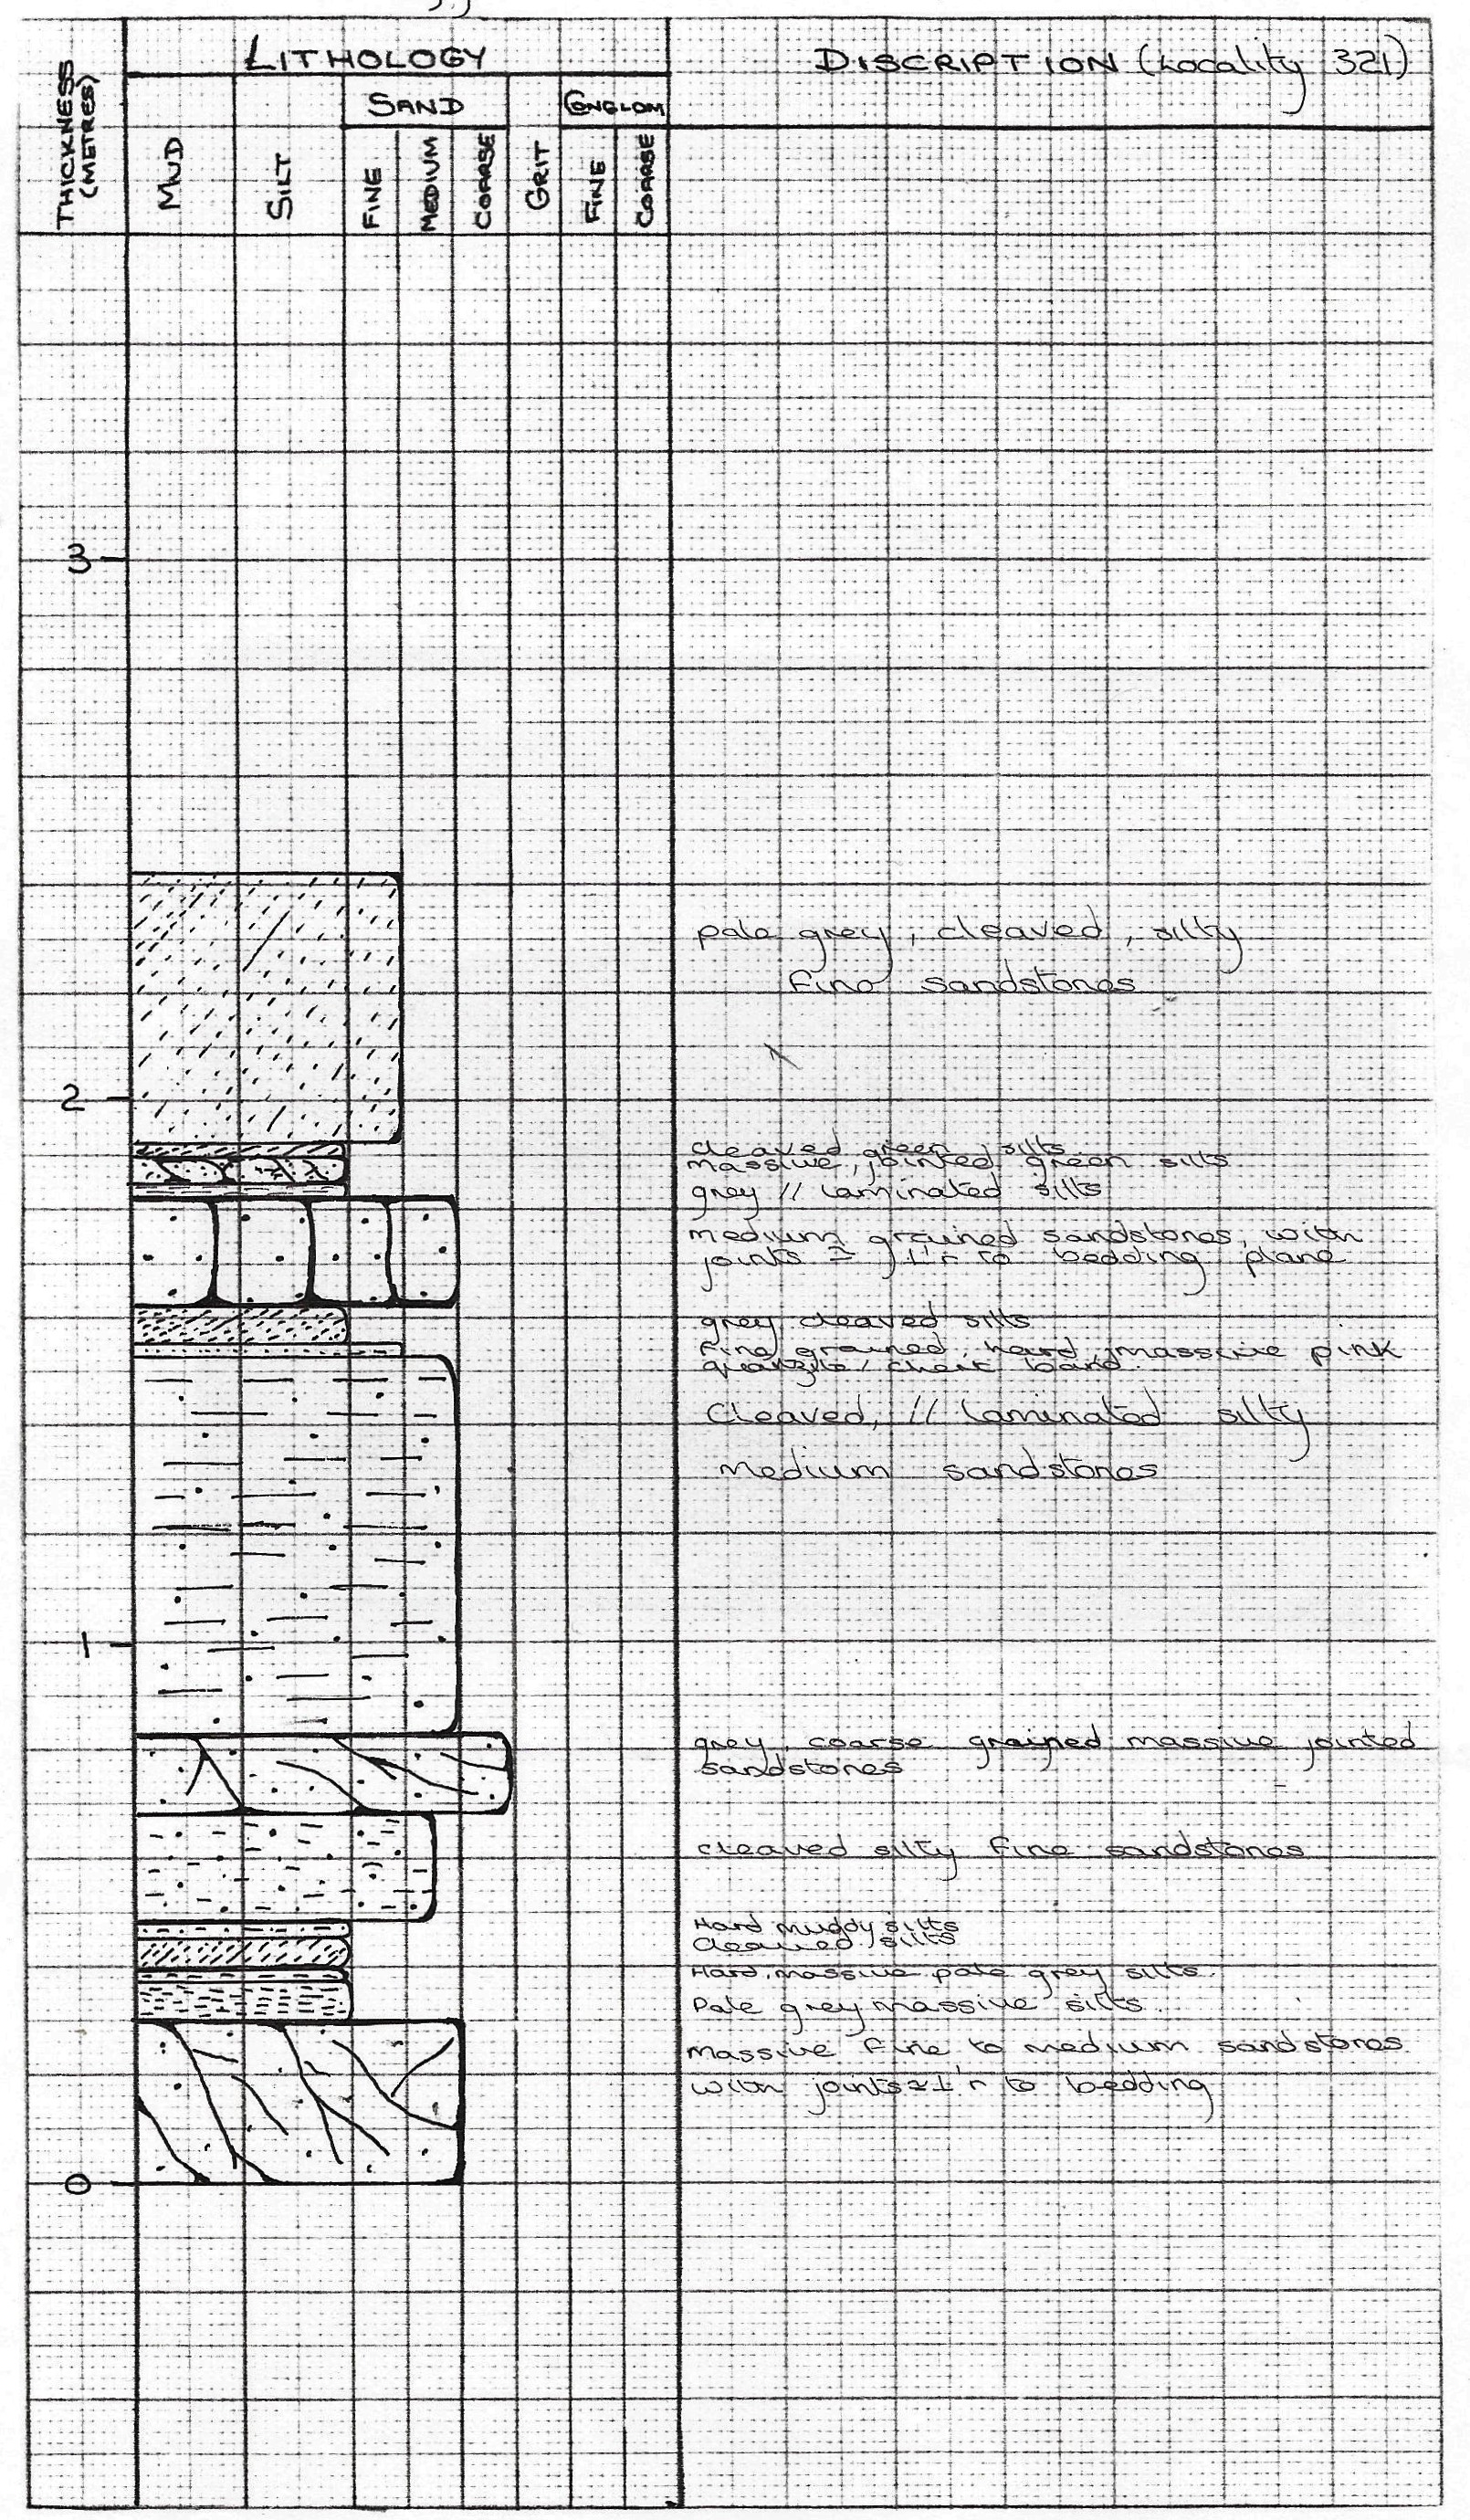 LITHOLOGY
DISCRIPTION (Locality 321)
THICKNESS
(METRES)
SAND
CONGLOM
MUD
SILT
FINE
MEDIUM
COARSE
GRIT
FINE
COARSE
3
pale grey, cleaved, silty
fine sandstones
2
cleaved green silts
massive, jointed green silts
grey // laminated silts
medium grained sandstones, with
joints ≃ ⊥'r to bedding plane
grey cleaved silts
Fine grained, hard, massive pink
quartzite / chert band.
Cleaved, // laminated silty
medium sandstones
1
grey, coarse grained massive jointed
sandstones
cleaved silty fine sandstones
Hard muddy silts
Cleaved silts
Hard, massive pale grey silts.
Pale grey massive silts.
Massive fine to medium sandstones
with joints ≃ ⊥'r to bedding
0